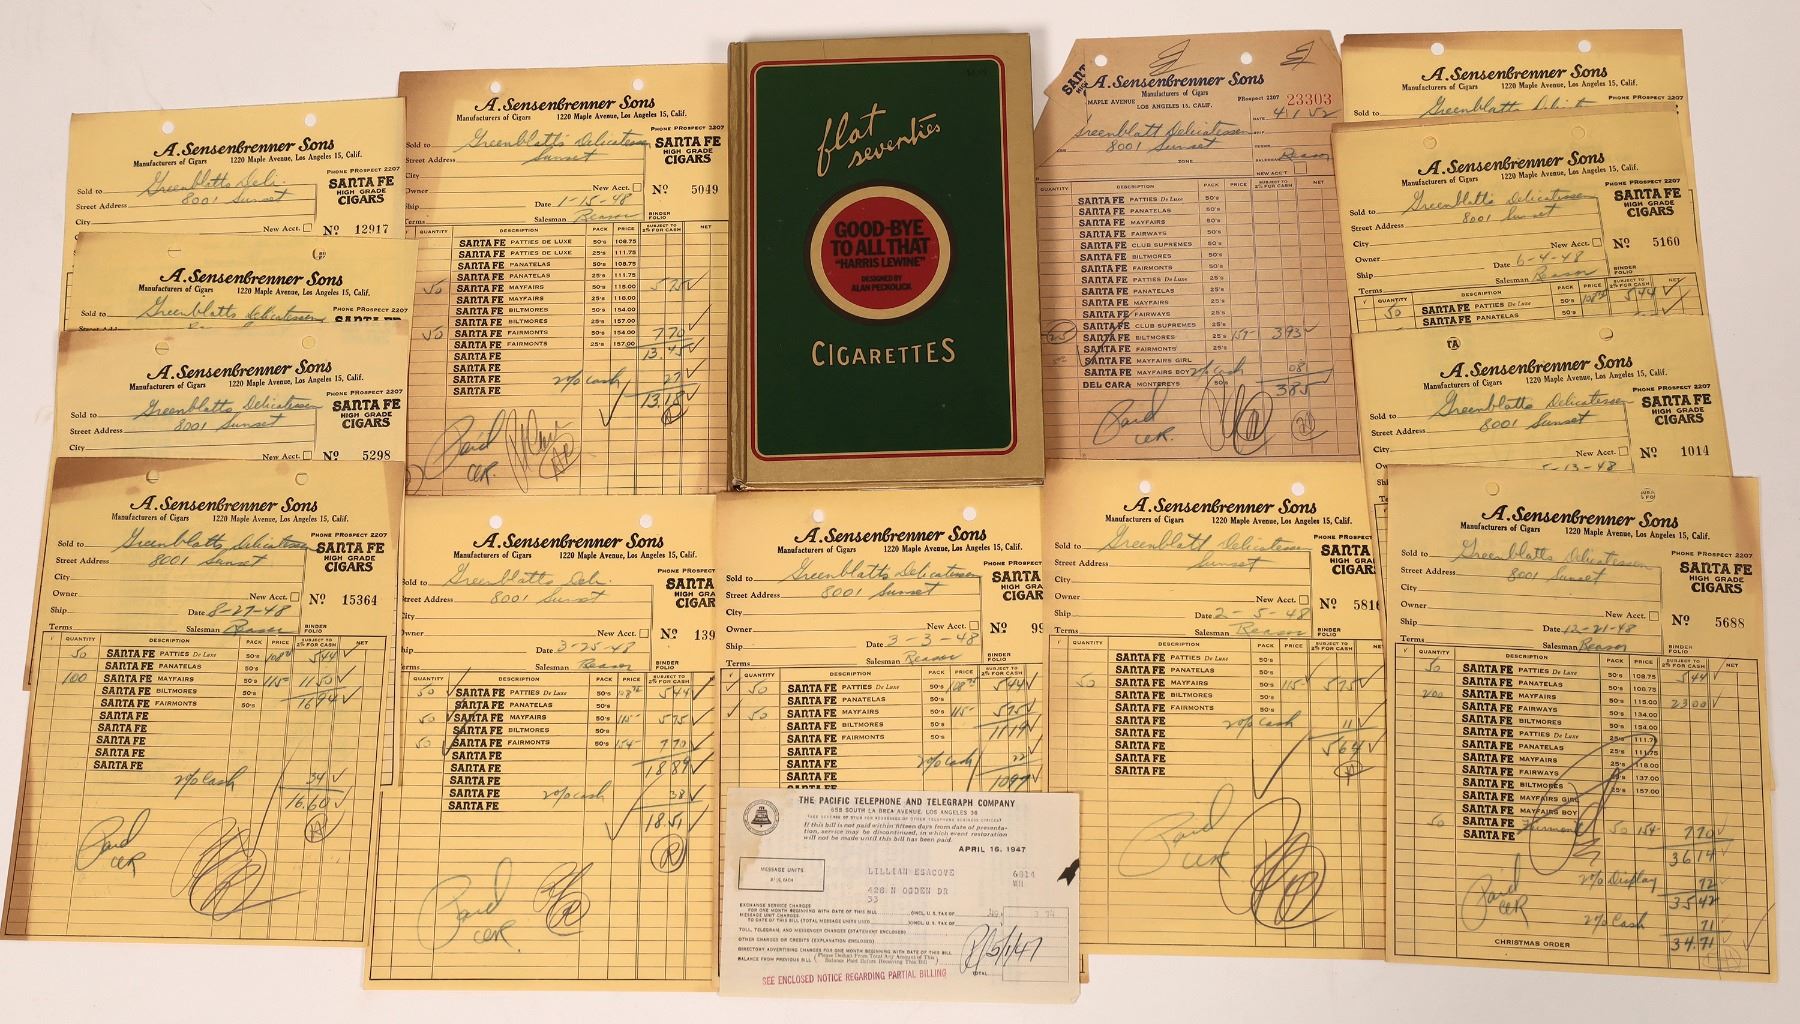 A. Sensenbrenner Sons
Manufacturers of Cigars 1220 Maple Avenue, Los Angeles 15, Calif.
PHONE PROSPECT 2207
Sold to Greenblatts Deli.
Street Address 8001 Sunset
City
SANTA FE
HIGH GRADE
CIGARS
New Acct.
Nº 12917
A. Sensenbrenner Sons
Manufacturers of Cigars 1220 Maple Avenue, Los Angeles 15, Calif.
PHONE PROSPECT 2207
Sold to Greenblatts Delicatessen
A. Sensenbrenner Sons
Manufacturers of Cigars 1220 Maple Avenue, Los Angeles 15, Calif.
PHONE PROSPECT 2207
Sold to Greenblatts Delicatessen
Street Address 8001 Sunset
City
SANTA FE
HIGH GRADE
CIGARS
New Acct.
Nº 5298
A. Sensenbrenner Sons
Manufacturers of Cigars 1220 Maple Avenue, Los Angeles 15, Calif.
PHONE PROSPECT 2207
Sold to Greenblatts Delicatessen
Street Address 8001 Sunset
City
SANTA FE
HIGH GRADE
CIGARS
Owner New Acct.
Nº 15364
Ship Date 8-27-48
Terms Salesman Reason
BINDER FOLIO
QUANTITY DESCRIPTION PACK PRICE SUBJECT TO 2% FOR CASH NET
50 SANTA FE PATTIES De Luxe 50's 108 75 5 44
SANTA FE PANATELAS 50's
100 SANTA FE MAYFAIRS 50's 115- 11 50
SANTA FE BILTMORES 50's 16 94
SANTA FE FAIRMONTS 50's
SANTA FE
SANTA FE
SANTA FE
SANTA FE
SANTA FE
2% Cash 34
16.60
Paid
A. Sensenbrenner Sons
Manufacturers of Cigars 1220 Maple Avenue, Los Angeles 15, Calif.
PHONE PROSPECT 2207
Sold to Greenblatts Delicatessen
Street Address Sunset
City
SANTA FE
HIGH GRADE
CIGARS
Owner New Acct.
Nº 5049
Ship Date 1-15-48
Terms Salesman Reason
BINDER FOLIO
DESCRIPTION PACK PRICE SUBJECT TO 2% FOR CASH NET
SANTA FE PATTIES DE LUXE 50's 108.75
SANTA FE PATTIES DE LUXE 25's 111.75
SANTA FE PANATELAS 50's 108.75
SANTA FE PANATELAS 25's 111.75
50 SANTA FE MAYFAIRS 50's 115.00 5 75
SANTA FE MAYFAIRS 25's 118.00
SANTA FE BILTMORES 50's 154.00
SANTA FE BILTMORES 25's 157.00
50 SANTA FE FAIRMONTS 50's 154.00 7 70
SANTA FE FAIRMONTS 25's 157.00
SANTA FE 13.45
SANTA FE
SANTA FE 2% Cash 27
SANTA FE 13.18
Paid
flat
seventies
GOOD-BYE
TO ALL THAT
"HARRIS LEWINE"
DESIGNED BY
ALAN PECKOLICK
CIGARETTES
SANTA
A. Sensenbrenner Sons
Manufacturers of Cigars
MAPLE AVENUE LOS ANGELES 15, CALIF. PROSPECT 2207
23303
DATE 4 1 52
Greenblatt Delicatessen
8001 Sunset
ZONE
SALESMAN Reason
NEW ACC'T
QUANTITY DESCRIPTION PACK PRICE SUBJECT TO 2% FOR CASH NET
SANTA FE PATTIES De Luxe 50's
SANTA FE PANATELAS 50's
SANTA FE MAYFAIRS 50's
SANTA FE FAIRWAYS 50's
SANTA FE CLUB SUPREMES 50's
SANTA FE BILTMORES 50's
SANTA FE FAIRMONTS 50's
SANTA FE PATTIES De Luxe 25's
SANTA FE PANATELAS 25's
SANTA FE MAYFAIRS 25's
SANTA FE FAIRWAYS 25's
SANTA FE CLUB SUPREMES 25's
25 SANTA FE BILTMORES 25's 157- 3 93
SANTA FE FAIRMONTS 25's
SANTA FE MAYFAIRS GIRL
SANTA FE MAYFAIRS BOY 2% Cash 08
DEL CARA MONTEREYS 50's 3 85
Paid
A. Sensenbrenner Sons
Manufacturers of Cigars 1220 Maple Avenue, Los Angeles 15, Calif.
PHONE PROSPECT 2207
Sold to
A. Sensenbrenner Sons
Manufacturers of Cigars 1220 Maple Avenue, Los Angeles 15, Calif.
PHONE PROSPECT 2207
Sold to Greenblatts Delicatessen
Street Address 8001 Sunset
City
SANTA FE
HIGH GRADE
CIGARS
Owner New Acct.
Nº 5160
Ship Date 6-4-48
Terms Salesman Reason
BINDER FOLIO
QUANTITY DESCRIPTION PACK PRICE SUBJECT TO 2% FOR CASH NET
50 SANTA FE PATTIES De Luxe 50's 108 75 5 44
SANTA FE PANATELAS 50's
A. Sensenbrenner Sons
Manufacturers of Cigars 1220 Maple Avenue, Los Angeles 15, Calif.
PHONE PROSPECT 2207
Sold to Greenblatts Delicatessen
Street Address 8001 Sunset
City
SANTA FE
HIGH GRADE
CIGARS
New Acct.
Nº 1014
5-13-48
A. Sensenbrenner Sons
Manufacturers of Cigars 1220 Maple Avenue, Los Angeles 15, Calif.
PHONE PROSPECT
Sold to Greenblatts Deli.
Street Address 8001 Sunset
SANTA
HIGH GRADE
CIGAR
Owner New Acct.
Nº 139
Date 3-25-48
Terms Salesman Reason
BINDER FOLIO
QUANTITY DESCRIPTION PACK PRICE SUBJECT TO 2% FOR CASH
50 SANTA FE PATTIES De Luxe 50's 108 75 5 44
SANTA FE PANATELAS 50's
50 SANTA FE MAYFAIRS 50's 115- 5 75
SANTA FE BILTMORES 50's
50 SANTA FE FAIRMONTS 50's 154- 7 70
SANTA FE
SANTA FE 18 89
SANTA FE
SANTA FE 2% Cash 38
SANTA FE 18.51
Paid
A. Sensenbrenner Sons
Manufacturers of Cigars 1220 Maple Avenue, Los Angeles 15, Calif.
PHONE PROSPECT
Sold to Greenblatts Delicatessen
Street Address 8001 Sunset
City
SANTA
HIGH GRADE
CIGAR
Owner New Acct.
Nº 99
Ship Date 3-3-48
Terms Salesman Reason
BINDER FOLIO
QUANTITY DESCRIPTION PACK PRICE SUBJECT TO 2% FOR CASH
50 SANTA FE PATTIES De Luxe 50's 108 75 5 44
SANTA FE PANATELAS 50's
50 SANTA FE MAYFAIRS 50's 115- 5 75
SANTA FE BILTMORES 50's 11 19
SANTA FE FAIRMONTS 50's
SANTA FE
SANTA FE 2% Cash 22
SANTA FE 10 97
THE PACIFIC TELEPHONE AND TELEGRAPH COMPANY
658 SOUTH LA BREA AVENUE, LOS ANGELES 36
If this bill is not paid within fifteen days from date of presenta-
tion, service may be discontinued, in which event restoration
will not be made until this bill has been paid.
APRIL 16, 1947
MESSAGE UNITS
LILLIAN ESACOVE
426 N OGDEN DR
33
6814
WH
EXCHANGE SERVICE CHARGES
FOR ONE MONTH BEGINNING WITH DATE OF THIS BILL (INCL. U.S. TAX OF
MESSAGE UNIT CHARGES
TO DATE OF THIS BILL (TOTAL MESSAGE UNITS USED (INCL. U.S. TAX OF
TOLL, TELEGRAM, AND MESSENGER CHARGES (STATEMENT ENCLOSED)
OTHER CHARGES OR CREDITS (EXPLANATION ENCLOSED)
DIRECTORY ADVERTISING CHARGES FOR ONE MONTH BEGINNING WITH DATE OF THIS BILL
BALANCE FROM PREVIOUS BILL (Please Deduct From Total Any Amount of This Balance Paid Before Receiving This Bill)
TOTAL
SEE ENCLOSED NOTICE REGARDING PARTIAL BILLING
A. Sensenbrenner Sons
Manufacturers of Cigars 1220 Maple Avenue, Los Angeles 15, Calif.
Sold to Greenblatt Delicatessen
Sunset
City
SANTA F
HIGH GRADE
CIGAR
Owner New Acct.
Nº 5816
Ship Date 2-5-48
Terms Salesman Reason
BINDER FOLIO
QUANTITY DESCRIPTION PACK PRICE SUBJECT TO 2% FOR CASH
SANTA FE PATTIES De Luxe 50's
SANTA FE PANATELAS 50's
50 SANTA FE MAYFAIRS 50's 115 5 75
SANTA FE BILTMORES 50's
SANTA FE FAIRMONTS 50's
SANTA FE 2% Cash 11
SANTA FE
SANTA FE 5 64
SANTA FE
SANTA FE
Paid
A. Sensenbrenner Sons
Manufacturers of Cigars 1220 Maple Avenue, Los Angeles 15, Calif.
PHONE PROSPECT 2207
Sold to Greenblatts Delicatessen
Street Address 8001 Sunset
City
SANTA FE
HIGH GRADE
CIGARS
Owner New Acct.
Nº 5688
Ship Date 12-21-48
Terms Salesman Reason
BINDER FOLIO
QUANTITY DESCRIPTION PACK PRICE SUBJECT TO 2% FOR CASH NET
50 SANTA FE PATTIES De Luxe 50's 108.75 5 44
SANTA FE PANATELAS 50's 108.75
200 SANTA FE MAYFAIRS 50's 115.00 23 00
SANTA FE FAIRWAYS 50's 134.00
SANTA FE BILTMORES 50's 154.00
SANTA FE PATTIES De Luxe 25's 111.75
SANTA FE PANATELAS 25's 111.75
SANTA FE MAYFAIRS 25's 118.00
SANTA FE FAIRWAYS 25's 137.00
SANTA FE BILTMORES 25's 157.00
SANTA FE MAYFAIRS GIRL
SANTA FE MAYFAIRS BOY
50 SANTA FE Fairmont 50 154- 7 70
36 14
2% Display 72
35 42
2% Cash 71
34.71
Paid
CHRISTMAS ORDER